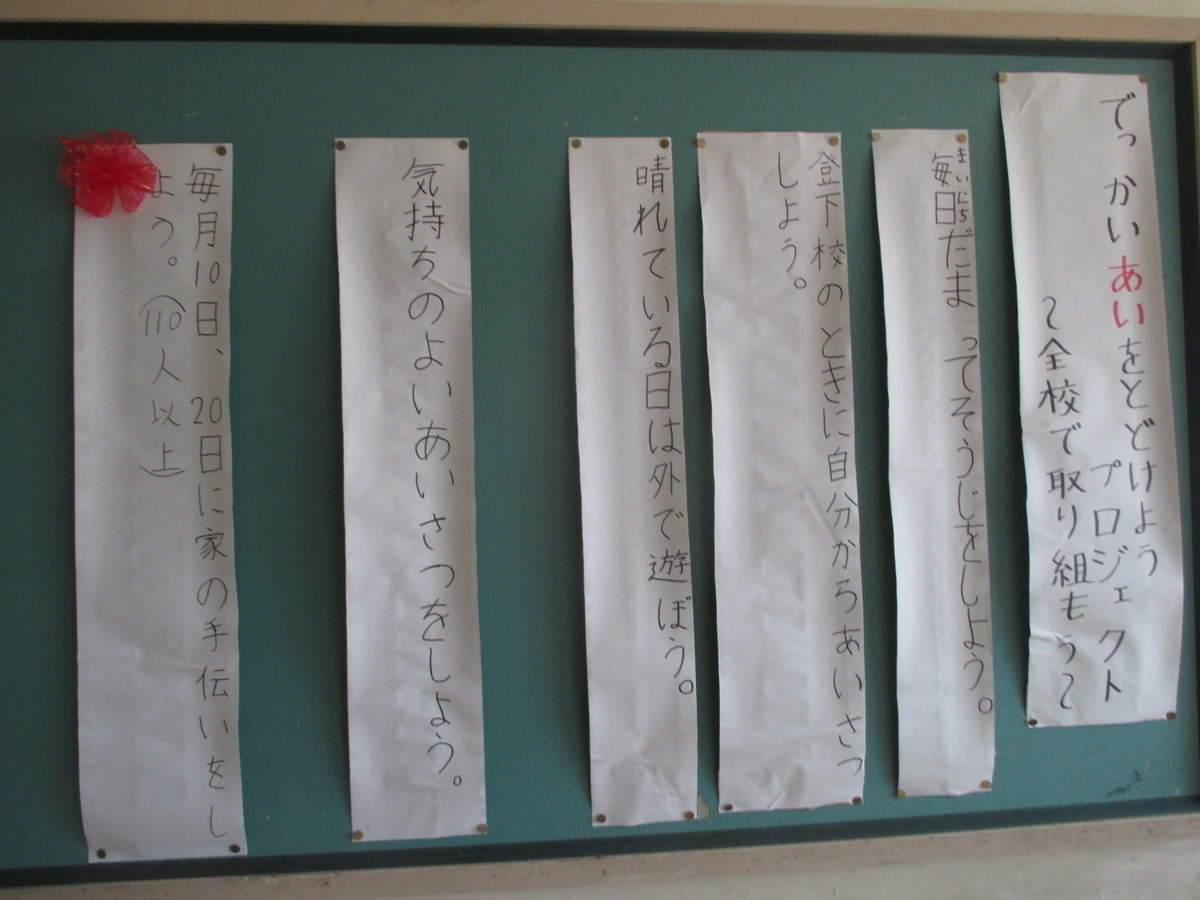 でっかいあいをとどけよう
プロジェクト
～全校で取り組もう～
毎日だまってそうじをしよう。
まいにち
登下校のときに自分からあいさつ
しよう。
晴れている日は外で遊ぼう。
気持ちのよいあいさつをしよう。
毎月10日、20日に家の手伝いをし
よう。(110人以上)